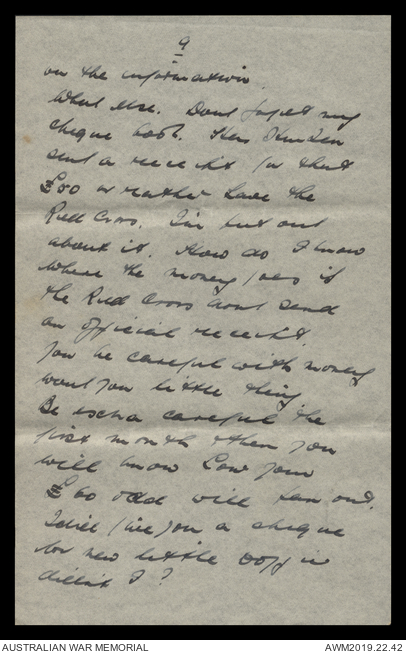 9
on the information.
What else. Dont forget my
cheque book. Has
sent a receipt for that
£50 or rather have the
Red Cross. I'm put out
about it. How do I know
where the money goes if
the Red Cross dont send
an official receipt.
You be careful with money
wont you little thing.
Be extra careful the
first month & then you
will know how your
£60 odd will pan out.
I did give you a cheque
for new little
didn't I?
AUSTRALIAN WAR MEMORIAL
AWM2019.22.42